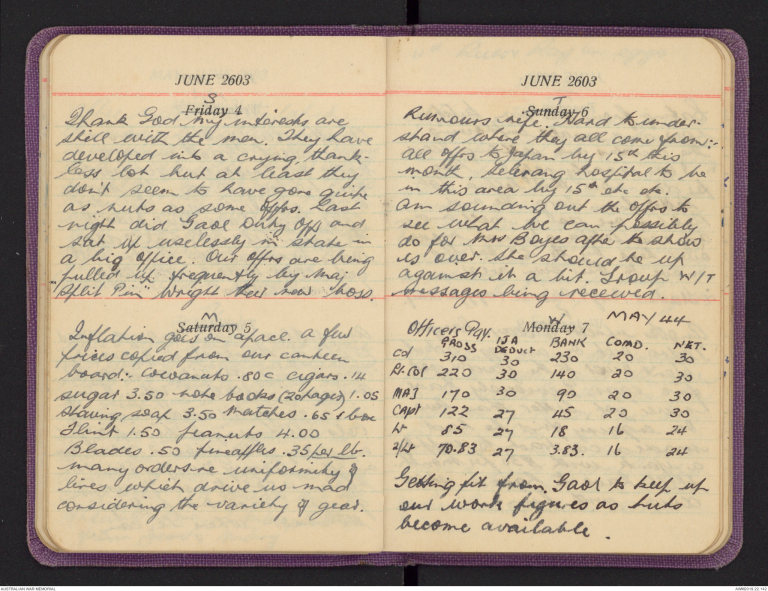 JUNE 2603
S
Friday 4
Thank God my interests are
still with the men. They have
developed into a crying, thank-
less lot but at least they
don't seem to have gone quite
as nuts as some Offrs. Last
night did Gaol Duty Offr and
sat up uselessly in state in
a big office. Our offrs are being
pulled up frequently by Maj
"Split Pin" Wright their new boss.
M
Saturday 5
Inflation goes on apace. A few
prices copied from our canteen
board:- Cocoanuts .80c cigars .14
sugar 3.50 note books (20 pages) 1.05
shaving soap 3.50 Matches .65 1 box
Flint 1.50 peanuts 4.00
Blades .50 pineapples .35 per lb.
Many orders re uniformity of
lines which drive us mad
considering the variety of gear.
JUNE 2603
T
Sunday 6
Rumours rife. Hard to under-
stand where they all come from:-
all offrs to Japan by 15th this
month, Selerang hospital to be
in this area by 15th etc etc.
Am sounding out the offrs to
see what we can possibly
do for Mrs Boyes after the show
is over. She should be up
against it a bit. Group W/T
messages being received.
W
Monday 7
MAY 44
Officers Pay.
GROSS IJA DEDUCT BANK COMD. NET.
Col 310 30 230 20 30
Lt. Col 220 30 140 20 30
MAJ 170 30 90 20 30
CAPT 122 27 45 20 30
Lt 85 27 18 16 24
2/Lt 70.83 27 3.83. 16 24
Getting fit from Gaol to keep up
our works figures as huts
become available.
AUSTRALIAN WAR MEMORIAL